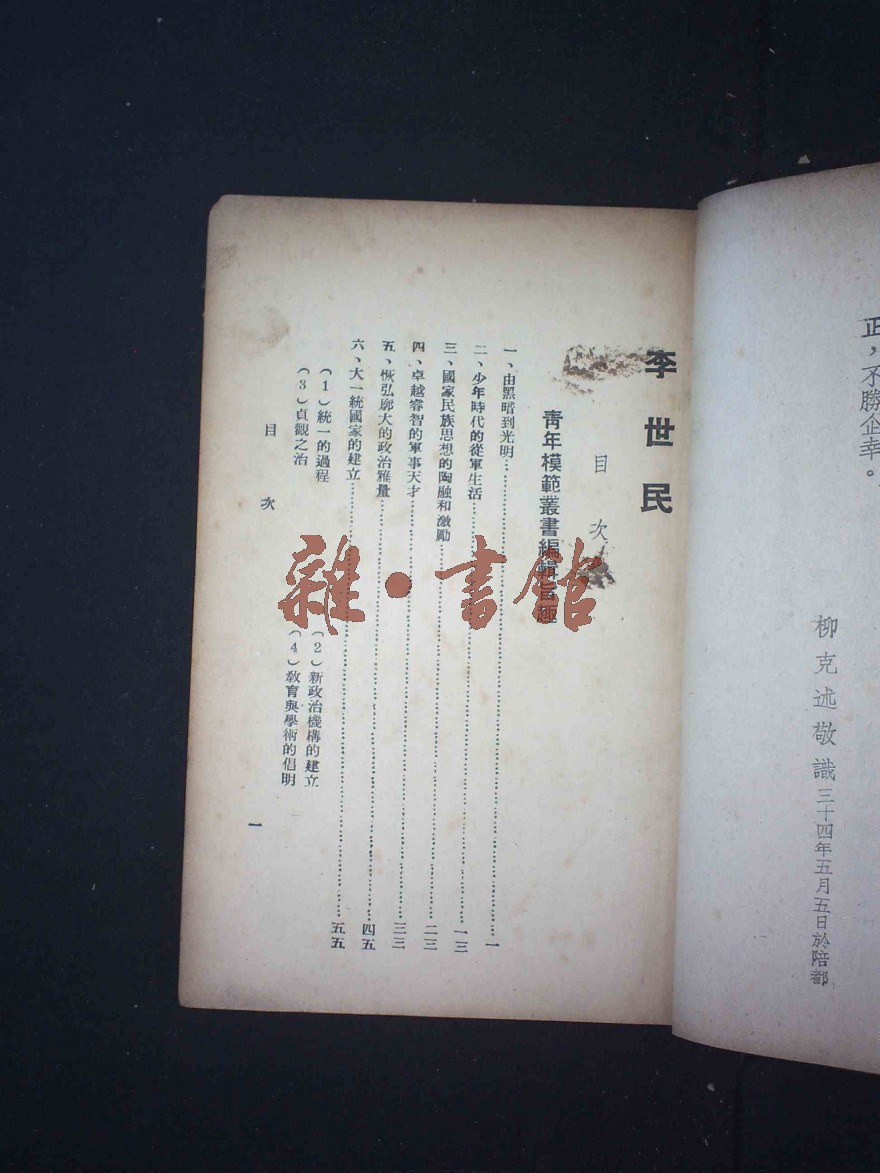 正，不勝企幸。
柳克述敬識三十四年五月五日於陪都
李世民
目次
青年模範叢書編輯旨趣
一、由黑暗到光明…………一
二、少年時代的從軍生活…………一三
三、國家民族思想的陶融和激勵…………二三
四、卓越睿智的軍事天才…………三三
五、恢弘廓大的政治雅量…………四五
六、大一統國家的建立…………五五
（1）統一的過程　（2）新政治機構的建立
（3）貞觀之治　（4）教育與學術的倡明
目次
一
雜·書館